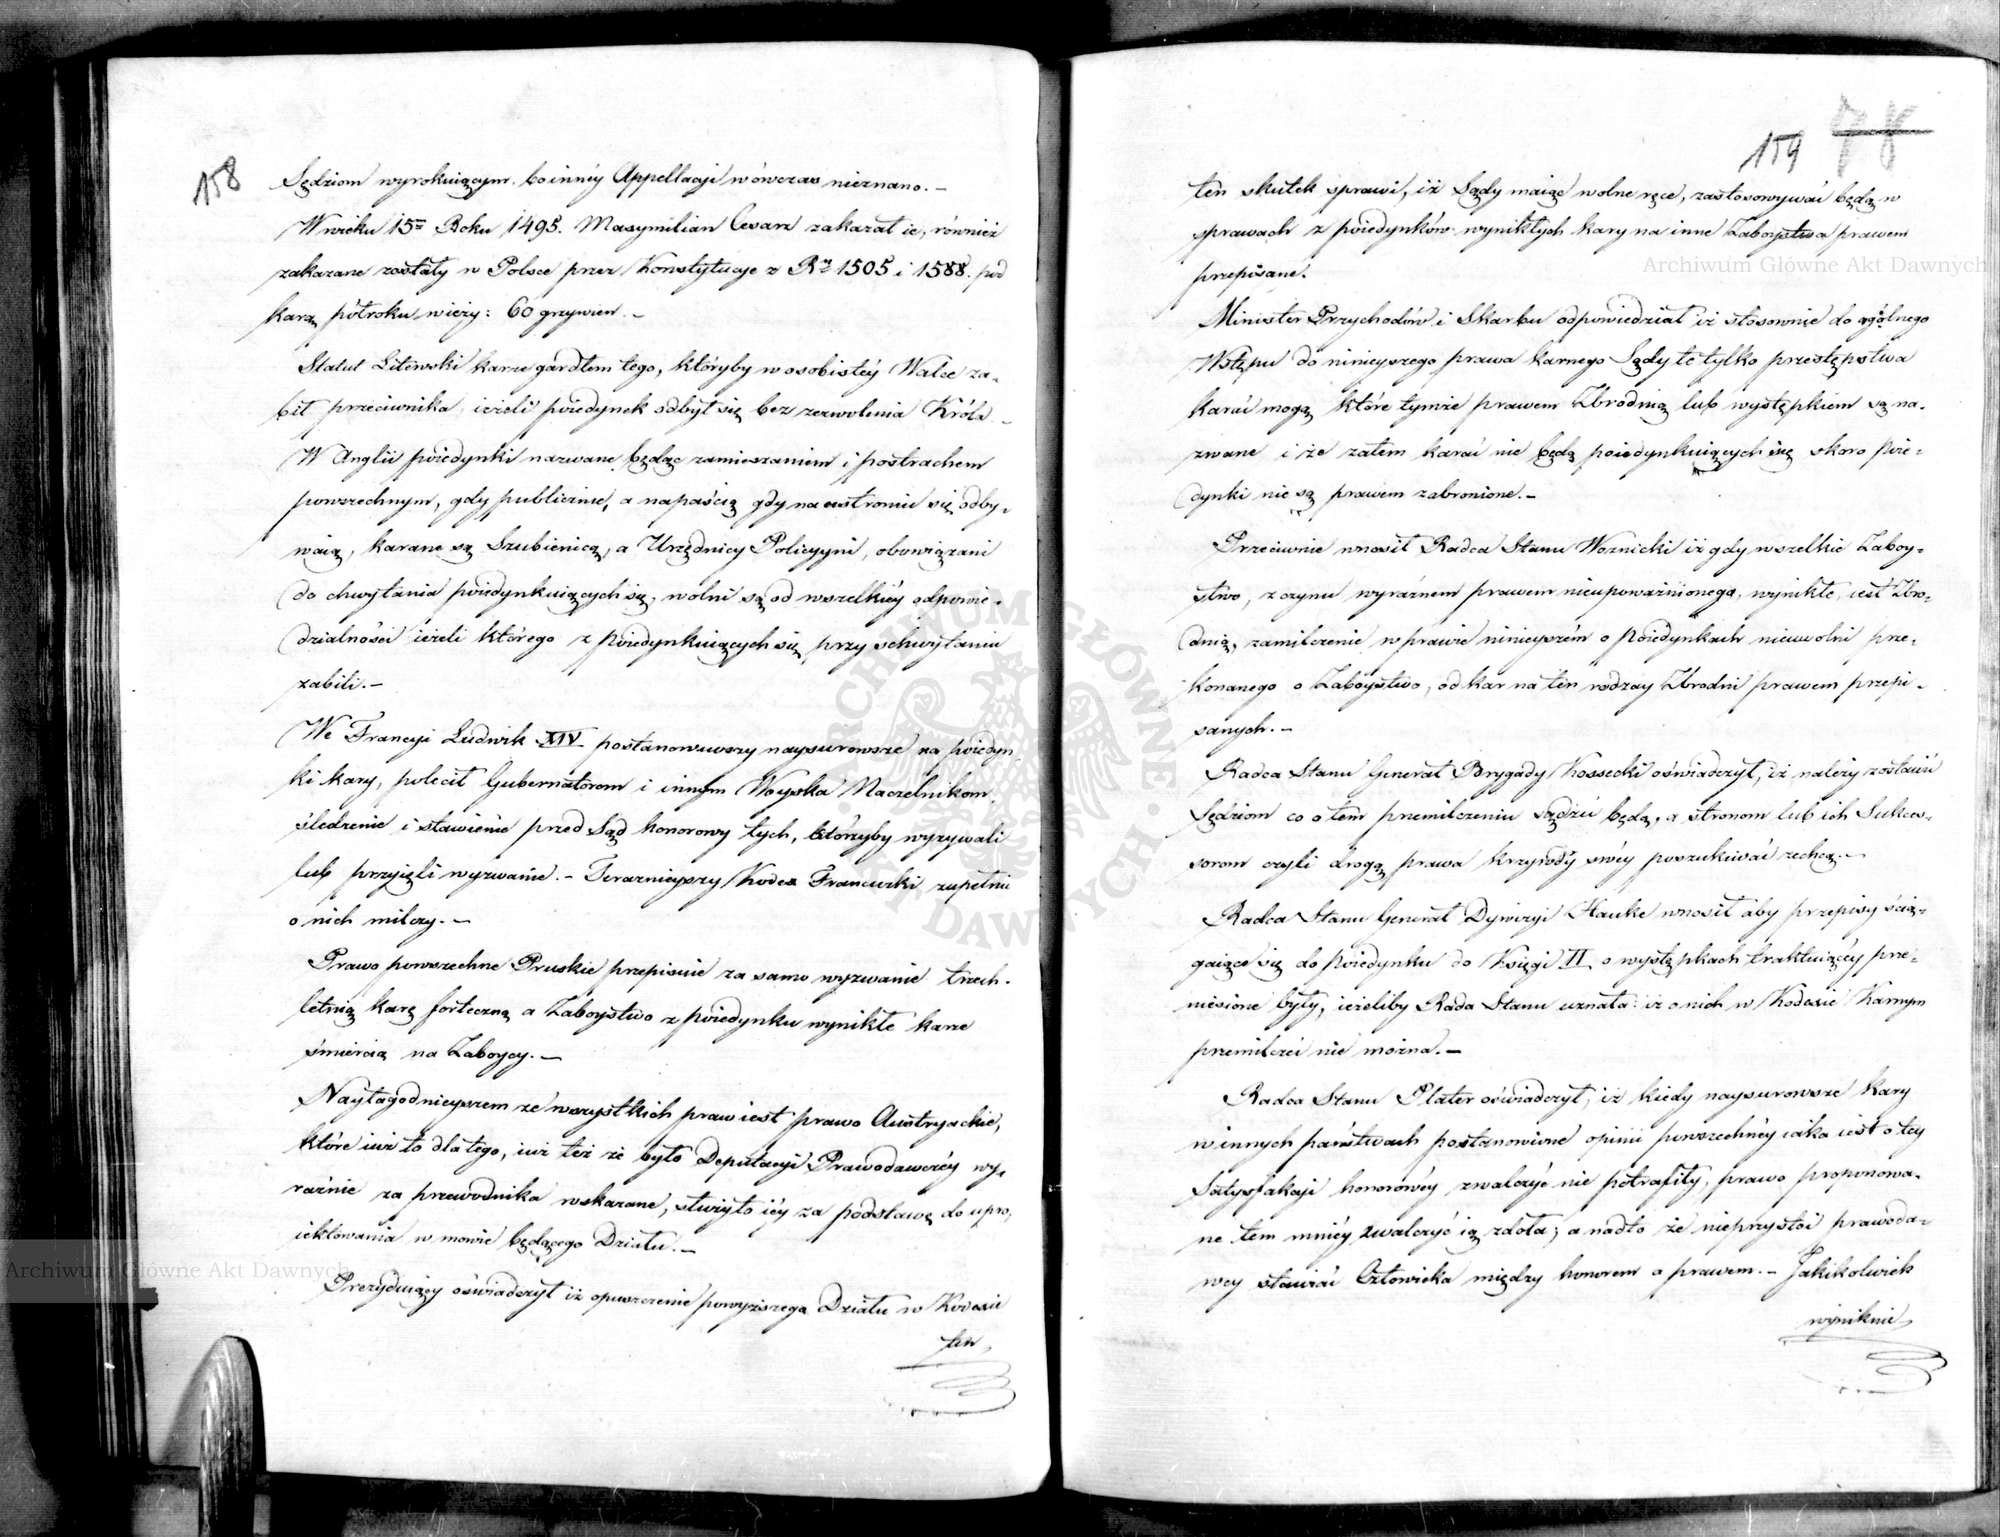 158
Sędziom wyrokuiącym. bo innéy Appellacyi wówczas nieznano. –
W wieku 15m Roku 1495. Maxymilian Cesarz zakazał ie, również
zakazane zostały w Polsce przez Konstytucye z Ru 1505 i 1588. pod
karą półroku wieży: 60 grzywien. –
Statut Litewski karze gardłem tego, któryby w osobistéy Walce za-
bił przeciwnika, ieżeli poiedynek odbył się bez zezwolenia Króla –
W Anglii poiedynki nazwane będąc zamieszaniem i postrachem
powszechnym, gdy publiczne, a napaścią gdy na ustroniu się odby-
waią, karane są Szubienicą, a Urzędnicy Policyyni, obowiązani
do chwytania poiedynkuiących się, wolni są od wszelkiéy odpowie-
dzialności ieżeli którego z poiedynkuiących się, przy schwytaniu
zabili. –
We Francyi Ludwik XIV postanowiwszy naysurowsze na poiedyn-
ki kary, polecił Gubernatorom i innym Woyska Naczelnikom,
śledzenie i stawienie przed Sąd honorowy tych, którzyby wyzywali
lub przyięli wyzwanie. – Teraznieyszy Kodex Francuzki zupełnie
o nich milczy. –
Prawo powszechne Pruskie przepisuie za samo wyzwanie trzech-
letnią karę forteczną a Zaboystwo z poiedynku wynikłe karze
śmiercią na Zaboycy. –
Nayłagodnieyszem ze wszystkich praw iest prawo Austryackie,
które iuż to dla tego, iuż też że było Deputacyi Prawodawczéy wy-
raźnie za przewodnika wskazane, służyło iéy za podstawę do upro-
iektowania w mowie będącego Działu. –
Prezyduiący oświadczył iż opuszczenie powyższego Działu w Kodexie
ten
159 78
ten skutek sprawi, iż Sądy maiąc wolne ręce, zastosowywać będą w
sprawach z poiedynków wynikłych kary na inne Zaboystwa prawem
przepisane.
Minister Przychodów i Skarbu odpowiedział iż stosownie do ogólnego
Wstępu do ninieyszego prawa karnego Sądy te tylko przestępstwa
karać mogą które tymże prawem Zbrodnią lub występkiem są na-
zwane i że zatem karać nie będą poiedynkuiących się skoro poie-
dynki nie są prawem zabronione. –
Przeciwnie wnosił Radca Stanu Woznicki iż gdy wszelkie Zaboy-
stwo, z czynu wyraźnem prawem nieupoważnionego, wynikłe, iest Zbro-
dnią, zamilczenie w prawie ninieyszém o Poiedynkach nieuwolni prze-
konanego o Zaboystwo, od kar na ten rodzay Zbrodni prawem przepi-
sanych. –
Radca Stanu Generał Brygady Kossecki oświadczył, iż należy zostawić
Sędziom co o tém przemilczeniu sądzić będą, a stronom lub ich Sukces-
sorom czyli drogą prawa krzywdy swéy poszukiwać zechcą. –
Radca Stanu Generał Dywizyi Hauke wnosił aby przepisy ścią-
gaiące się do poiedynku do Księgi II o występkach traktuiącéy prze-
niesione były, ieżeliby Rada Stanu uznała: iż o nich w Kodexie Karnym
przemilczeć nie można. –
Radca Stanu Plater oświadczył, iż kiedy naysurowsze kary
w innych państwach postanowione opinii powszechnéy iaka iest o tey
Satysfakcyi honorowéy zwalczyć nie potrafiły, prawo proponowa-
ne tem mniéy zwalczyć ią zdoła; a nadto że nieprzystoi prawoda-
wcy stawiać Człowieka między honorem a prawem. – Jakikolwiek
wyniknie
Archiwum Główne Akt Dawnych
Archiwum Główne Akt Dawnych
ARCHIWUM GŁÓWNE AKT DAWNYCH